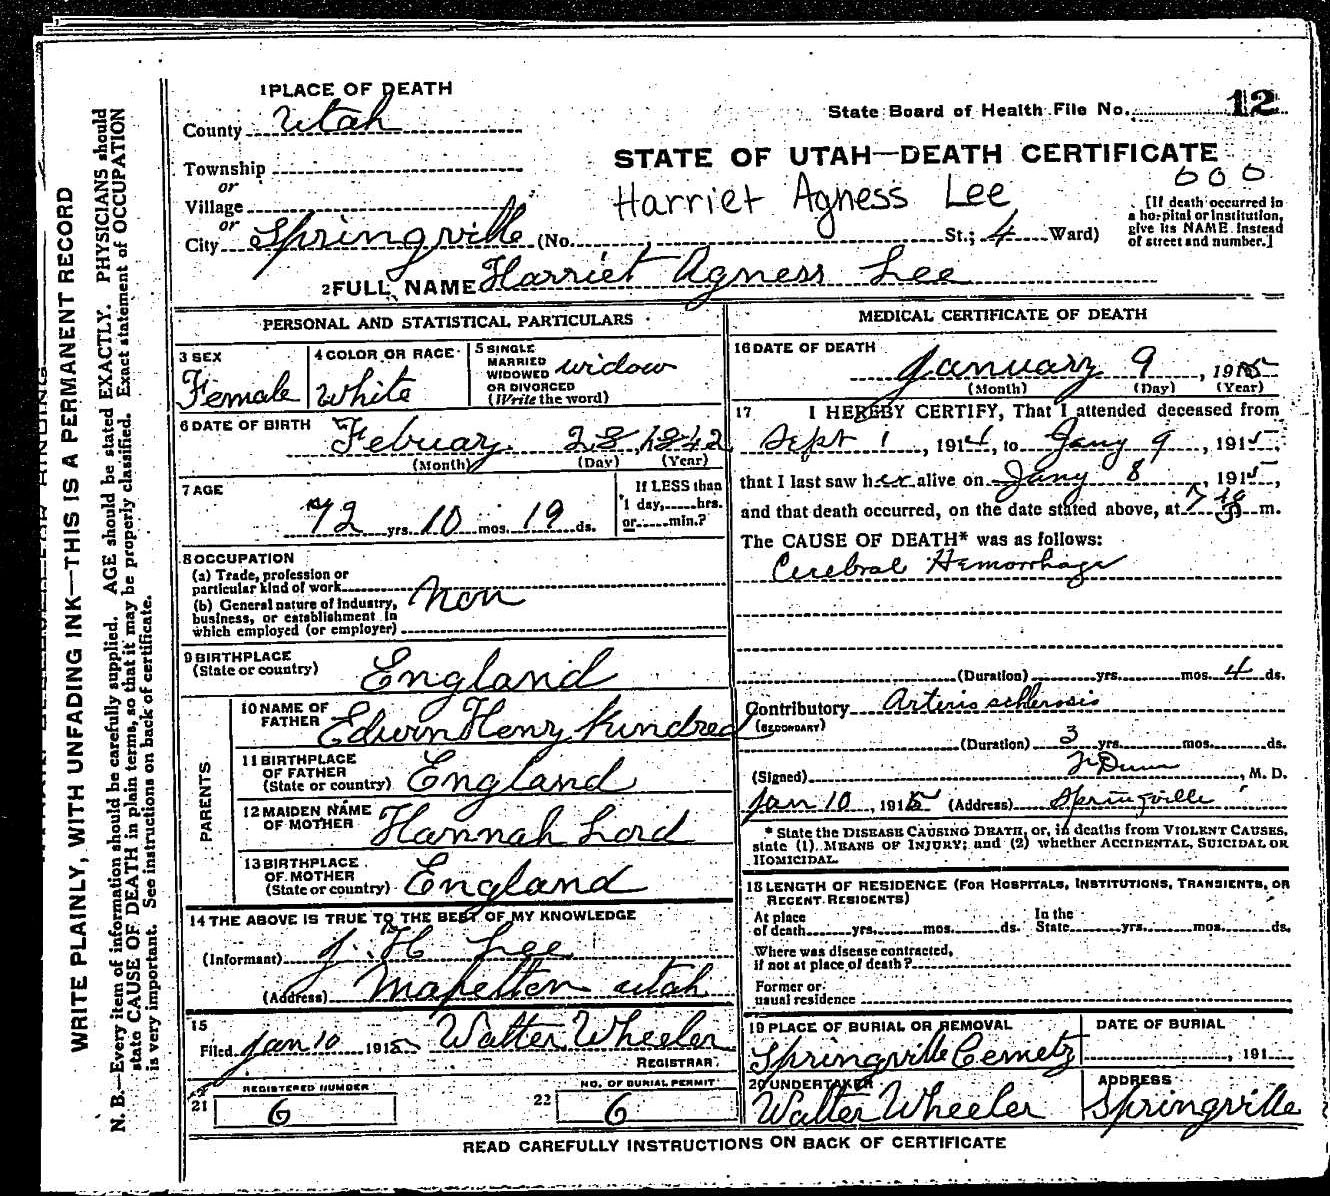 1 PLACE OF DEATH
County Utah
Township
or
Village
or
City Springville (No. St.; 4 Ward)
State Board of Health File No. 12
STATE OF UTAH—DEATH CERTIFICATE
600
Harriet Agness Lee
[If death occurred in
a hospital or institution,
give its NAME instead
of street and number.]
2 FULL NAME Harriet Agness Lee
PERSONAL AND STATISTICAL PARTICULARS
3 SEX
Female
4 COLOR OR RACE
White
5 SINGLE
MARRIED
WIDOWED
OR DIVORCED
(Write the word)
widow
6 DATE OF BIRTH Febuary 28, 1842
(Month) (Day) (Year)
7 AGE
72 yrs. 10 mos. 19 ds.
If LESS than
1 day, hrs.
or min.?
8 OCCUPATION
(a) Trade, profession or
particular kind of work
(b) General nature of industry,
business, or establishment in
which employed (or employer)
Non
9 BIRTHPLACE
(State or country) England
PARENTS
10 NAME OF
FATHER Edwin Henry Kindred
11 BIRTHPLACE
OF FATHER
(State or country) England
12 MAIDEN NAME
OF MOTHER Hannah Lord
13 BIRTHPLACE
OF MOTHER
(State or country) England
14 THE ABOVE IS TRUE TO THE BEST OF MY KNOWLEDGE
(Informant) J. H Lee
(Address) Mapelton utah
15
Filed Jan 10 1915 Walter Wheeler
REGISTRAR
21 REGISTERED NUMBER
6
22 NO. OF BURIAL PERMIT
6
MEDICAL CERTIFICATE OF DEATH
16 DATE OF DEATH
January 9, 1915
(Month) (Day) (Year)
17 I HEREBY CERTIFY, That I attended deceased from
Sept 1, 1914, to Jany 9, 1915,
that I last saw her alive on Jany 8, 1915,
and that death occurred, on the date stated above, at m.
The CAUSE OF DEATH* was as follows:
Cerebral Hemorrhage
(Duration) yrs. mos. 4 ds.
Contributory Arterio schlerosis
(SECONDARY)
(Duration) 3 yrs. mos. ds.
(Signed) Dunn, M. D.
Jan 10, 1915 (Address) Springville
* State the DISEASE CAUSING DEATH, or, in deaths from VIOLENT CAUSES,
state (1) MEANS OF INJURY; and (2) whether ACCIDENTAL, SUICIDAL OR
HOMICIDAL.
18 LENGTH OF RESIDENCE (FOR HOSPITALS, INSTITUTIONS, TRANSIENTS, OR
RECENT RESIDENTS)
At place
of death yrs. mos. ds.
In the
State yrs. mos. ds.
Where was disease contracted,
if not at place of death?
Former or
usual residence
19 PLACE OF BURIAL OR REMOVAL
Springville Cemetry
DATE OF BURIAL
, 191
20 UNDERTAKER
Walter Wheeler
ADDRESS
Springville
READ CAREFULLY INSTRUCTIONS ON BACK OF CERTIFICATE
WRITE PLAINLY, WITH UNFADING INK—THIS IS A PERMANENT RECORD
N. B.—Every item of information should be carefully supplied. AGE should be stated EXACTLY. PHYSICIANS should
state CAUSE OF DEATH in plain terms, so that it may be properly classified. Exact statement of OCCUPATION
is very important. See instructions on back of certificate.